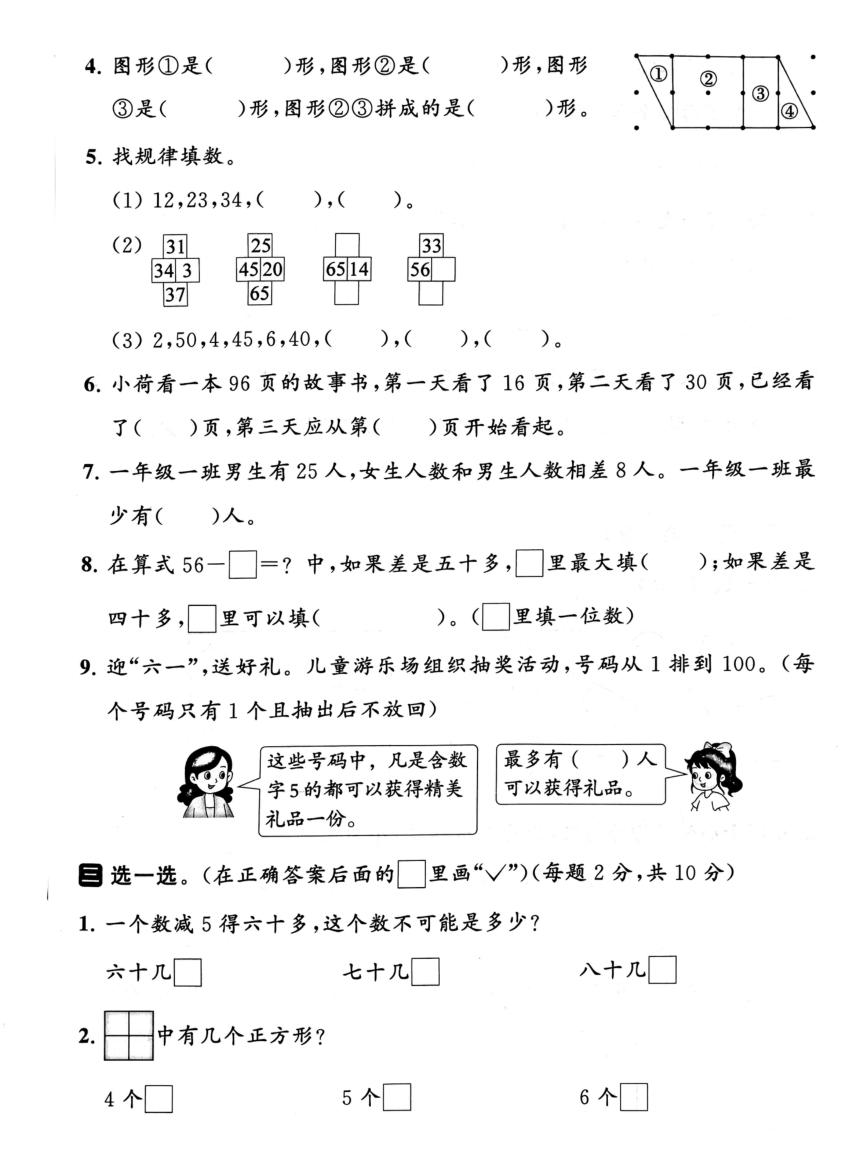 4. 图形①是(　　　)形,图形②是(　　　)形,图形
③是(　　　)形,图形②③拼成的是(　　　)形。
① ② ③ ④
5. 找规律填数。
(1) 12,23,34,(　　),(　　)。
(2) 31 25 □ 33
34 3 45 20 65 14 56 □
37 65 □ □
(3) 2,50,4,45,6,40,(　　),(　　),(　　)。
6. 小荷看一本 96 页的故事书,第一天看了 16 页,第二天看了 30 页,已经看
了(　　)页,第三天应从第(　　)页开始看起。
7. 一年级一班男生有 25 人,女生人数和男生人数相差 8 人。一年级一班最
少有(　　)人。
8. 在算式 56-□=? 中,如果差是五十多,□里最大填(　　);如果差是
四十多,□里可以填(　　　　　)。(□里填一位数)
9. 迎“六一”,送好礼。儿童游乐场组织抽奖活动,号码从 1 排到 100。(每
个号码只有 1 个且抽出后不放回)
这些号码中，凡是含数
字5的都可以获得精美
礼品一份。
最多有(　　)人
可以获得礼品。
三 选一选。(在正确答案后面的□里画“✓”)(每题 2 分,共 10 分)
1. 一个数减 5 得六十多,这个数不可能是多少?
六十几□ 七十几□ 八十几□
2. 中有几个正方形?
4 个□ 5 个□ 6 个□